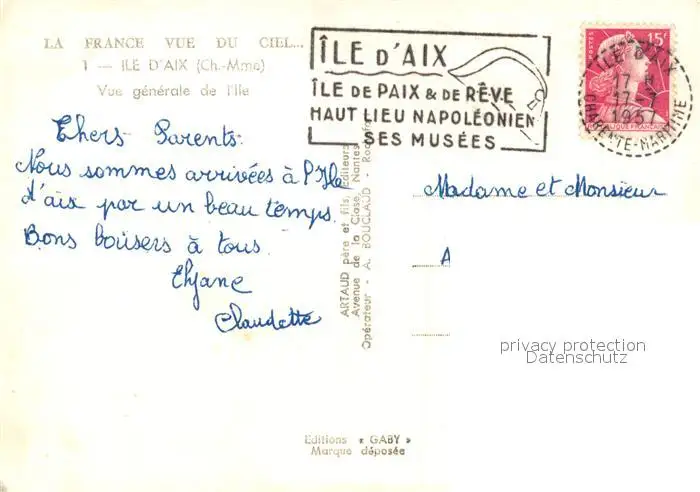 LA FRANCE VUE DU CIEL...
1 — ILE D'AIX (Ch.-Mme)
Vue générale de l'Ile
ÎLE D'AIX
ÎLE DE PAIX & DE RÊVE
HAUT LIEU NAPOLÉONIEN
SES MUSÉES
POSTES
15F
RÉPUBLIQUE FRANÇAISE
ILE D'AIX
17 H
17-7
1957
CHARENTE-MARITIME
Chers Parents.
Nous sommes arrivées à l'Ile
d'aix par un beau temps.
Bons baisers à tous.
Elyane
Claudette
ARTAUD père et fils, Editeurs
Avenue de la Close, Nantes
Opérateur - A. BOUCLAUD
Madame et Monsieur
A
privacy protection
Datenschutz
Editions « GABY »
Marque déposée